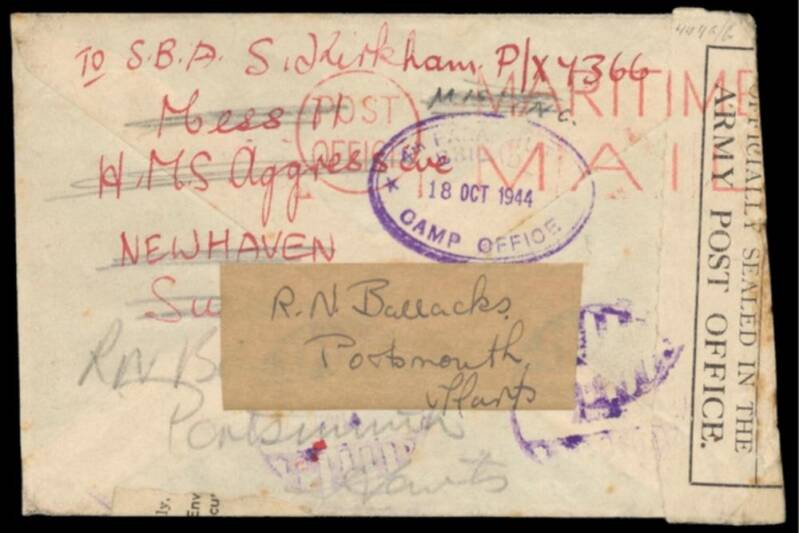 To S.B.A. S. Kirkham. P/X 4366
Mess 11
H.M.S Aggressive
NEWHAVEN
Su
POST
OFFICE
MARITIME
MAIL
18 OCT 1944
CAMP OFFICE
R.N Barracks.
Portsmouth
Hants
RN B
Portsmouth
Hants
OFFICIALLY SEALED IN THE
ARMY POST OFFICE.
ly.
Env
cu